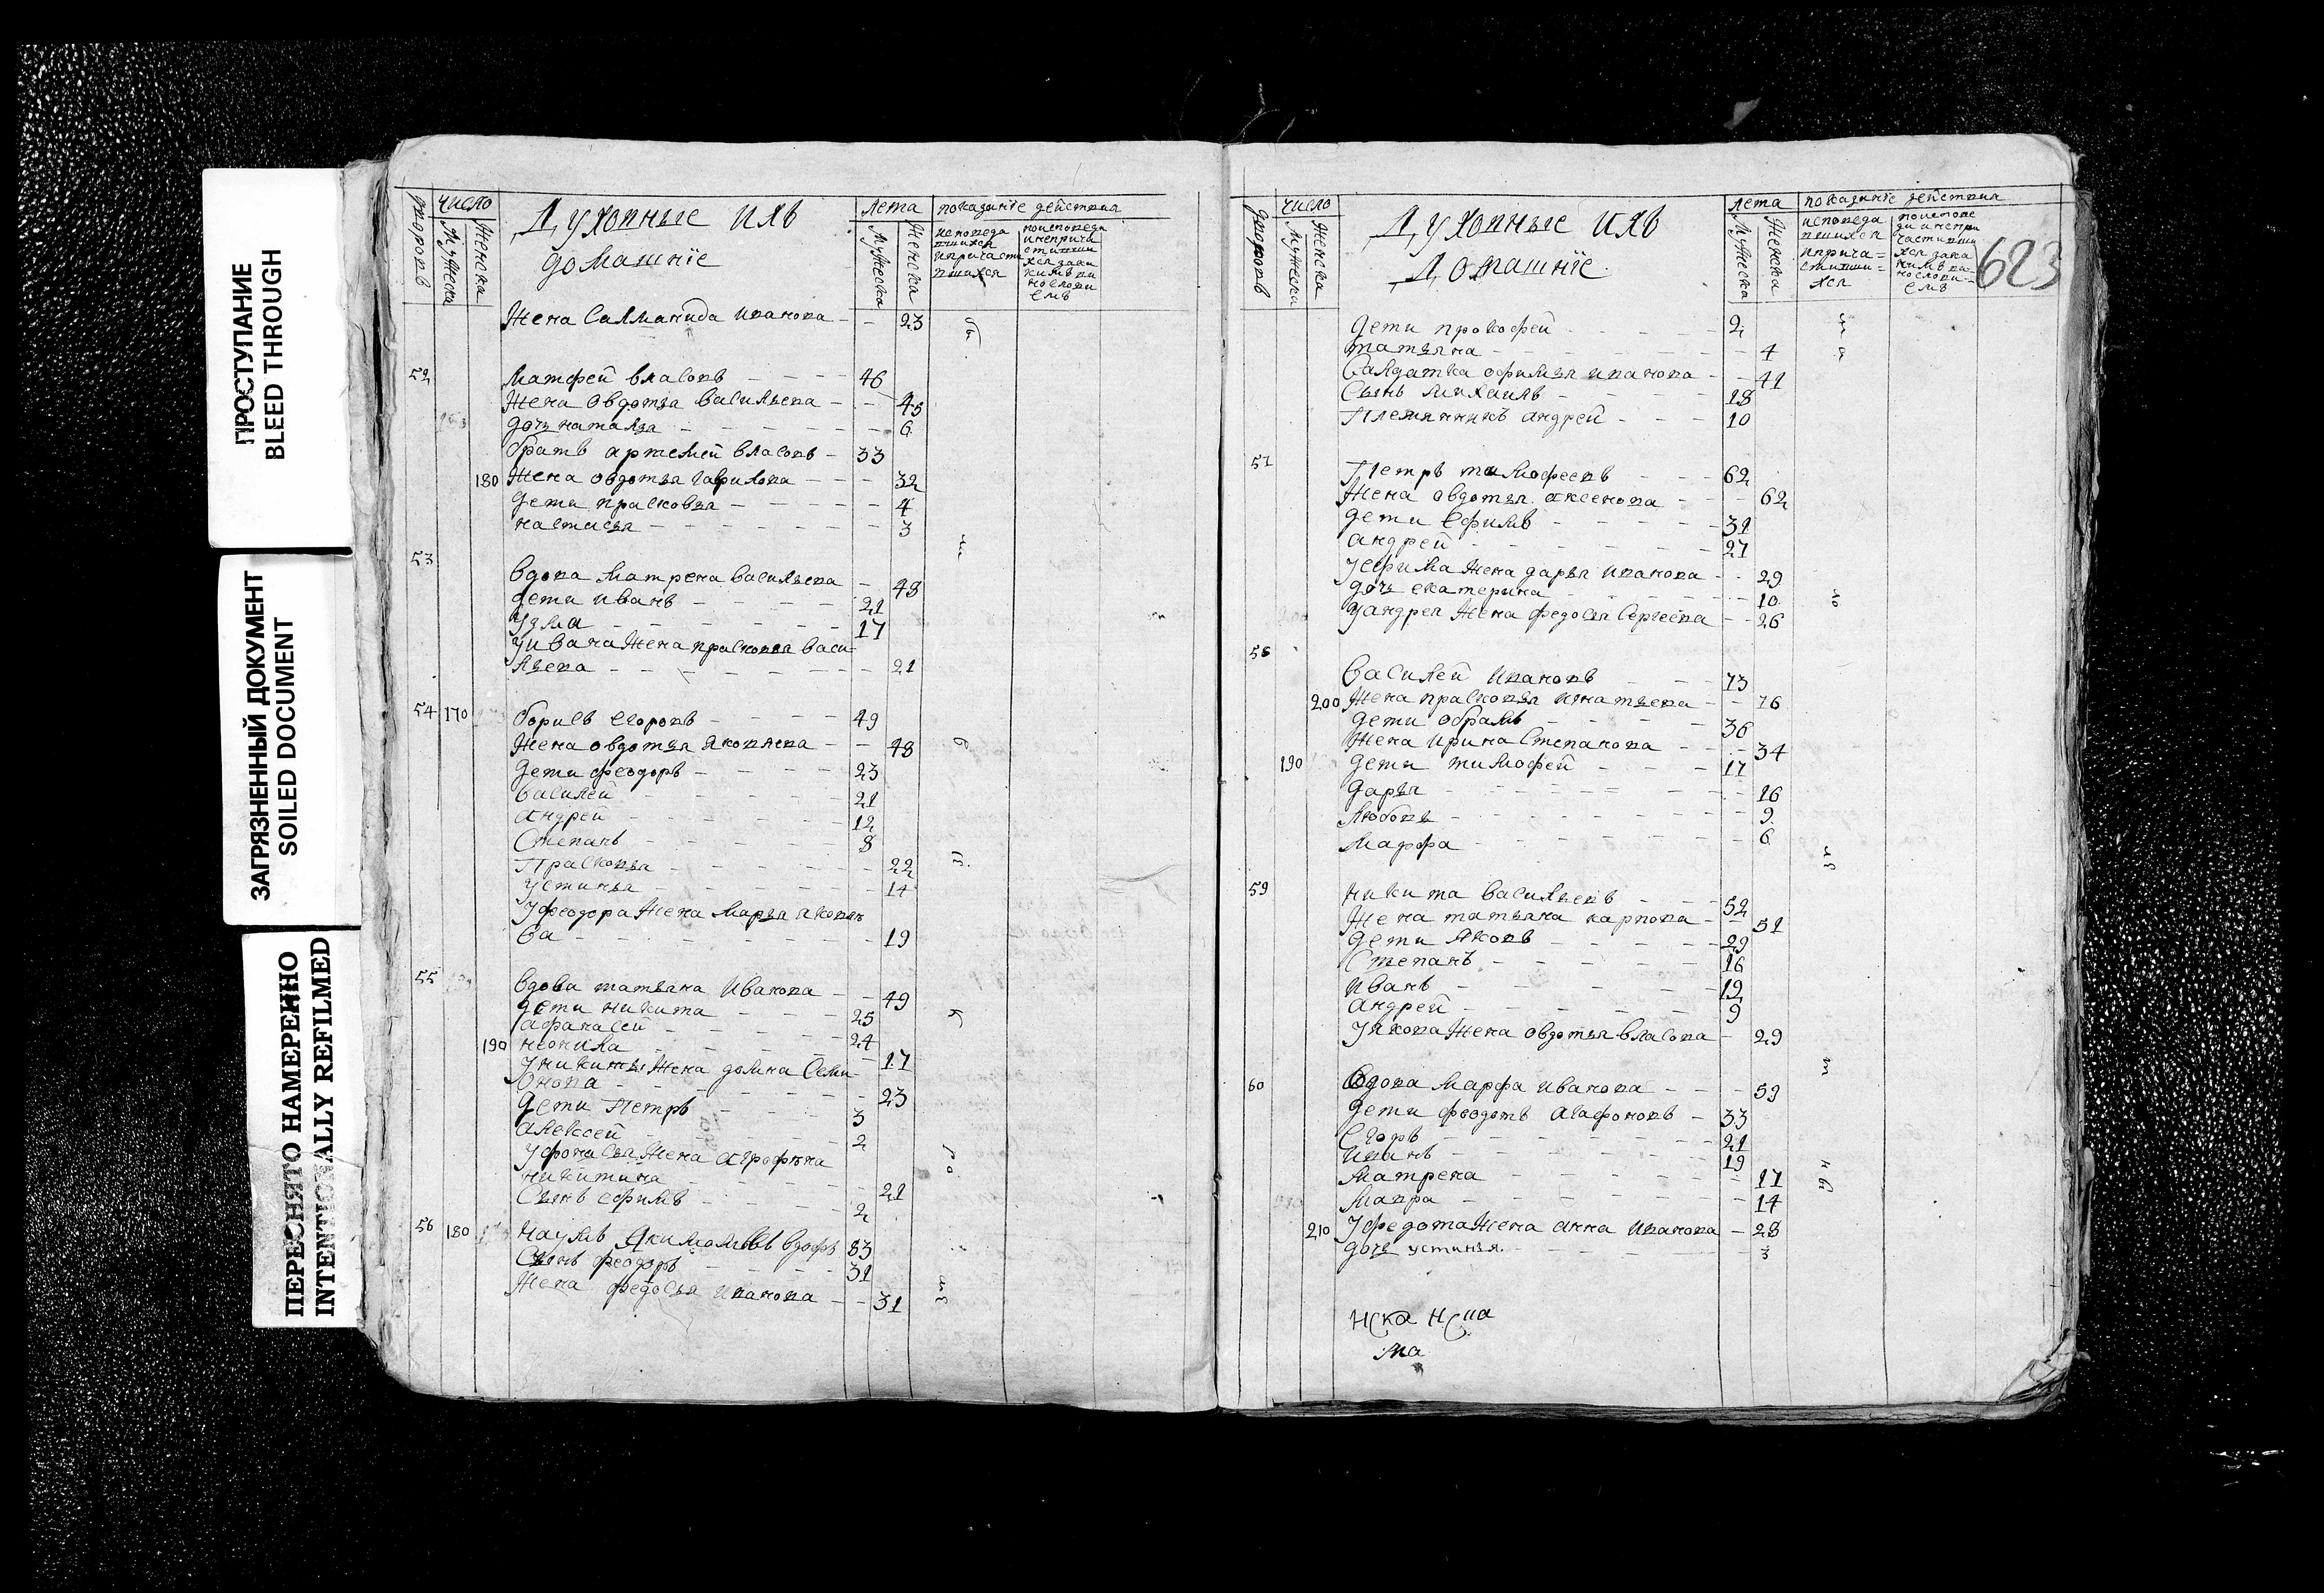 ПРОСТУПАНИЕ
BLEED THROUGH
ЗАГРЯЗНЕННЫЙ ДОКУМЕНТ
SOILED DOCUMENT
ПЕРЕСНЯТО НАМЕРЕННО
INTENTIONALLY REFILMED
число
Духовные ихъ
лета
показание действия
дворовъ
мужеска
женска
домашнïе
мужеска
женска
Жена Саламанида иванова - - 23
52 матфей власовъ - - - 46
Жена овдотья васильева - - 45
дочь наталья - - - 6
братъ артемей власовъ - 33
180 Жена овдотья гаврилова - - - 32
дети прасковья - - - 4
настасья - - - 3
53
вдова матрена васильева - 48
дети иванъ - - - 21
узма - - - 17
у ивана жена прасковья васи
льева - - - 21
54 170 борисъ егоровъ - - - 49
Жена овдотья яковлева - - 48
дети феодоръ - - - 23
василей - - - 21
андрей - - - 12
Степанъ - - - 8
Прасковья - - - 22
устинья - - - 14
у феодора жена марья яковле
ва - - - 19
55 вдова татьяна иванова - - 49
дети никита - - - 25
афанасей - - - 24
190 неонила - - - 17
у никиты жена домна Семи
онова - - - 23
дети Петръ - - - 3
алексей - - - 2
жена аграфена
никитина - - - 21
Сынъ ефимъ - - - 2
56 180 наумъ вдовъ 83
Сынъ феодоръ - - - 31
Жена федосья иванова - - 31
число
Духовные ихъ
лета
показание действия
дворовъ
мужеска
женска
Домашнïе
мужеска
женска
623
дети прокофей - - - 2
татьяна - - - 4
Салдатка офимья иванова - - 41
Сынъ михаилъ - - - 18
Племянникъ андрей - - - 10
57 Петръ тимофеевъ - - - 62
Жена овдотья аксенова - - 62
дети Ефимъ - - - 31
андрей - - - 27
у ефима жена дарья иванова - - 29
дочь екатерина - - - 10
у андрея жена федосья Сергеева - - 26
58
василей ивановъ - - - 73
200 Жена прасковья игнатьева - - 76
дети обрамъ - - - 36
Жена ирина Степанова - - - 34
190 дети тимофей - - - 17
дарья - - - 16
любовь - - - 9
марфа - - - 6
59 никита васильевъ - - - 52
Жена татьяна карпова - - 51
дети яковъ - - - 29
Степанъ - - - 16
иванъ - - - 12
андрей - - - 9
у якова жена овдотья власова - 29
60 вдова марфа иванова - - - 59
дети феодотъ агафоновъ - 33
Егоръ - - - 21
иванъ - - - 19
матрена - - - 17
мавра - - - 14
210 у федота жена анна иванова - 28
дочь устинья - - - 3